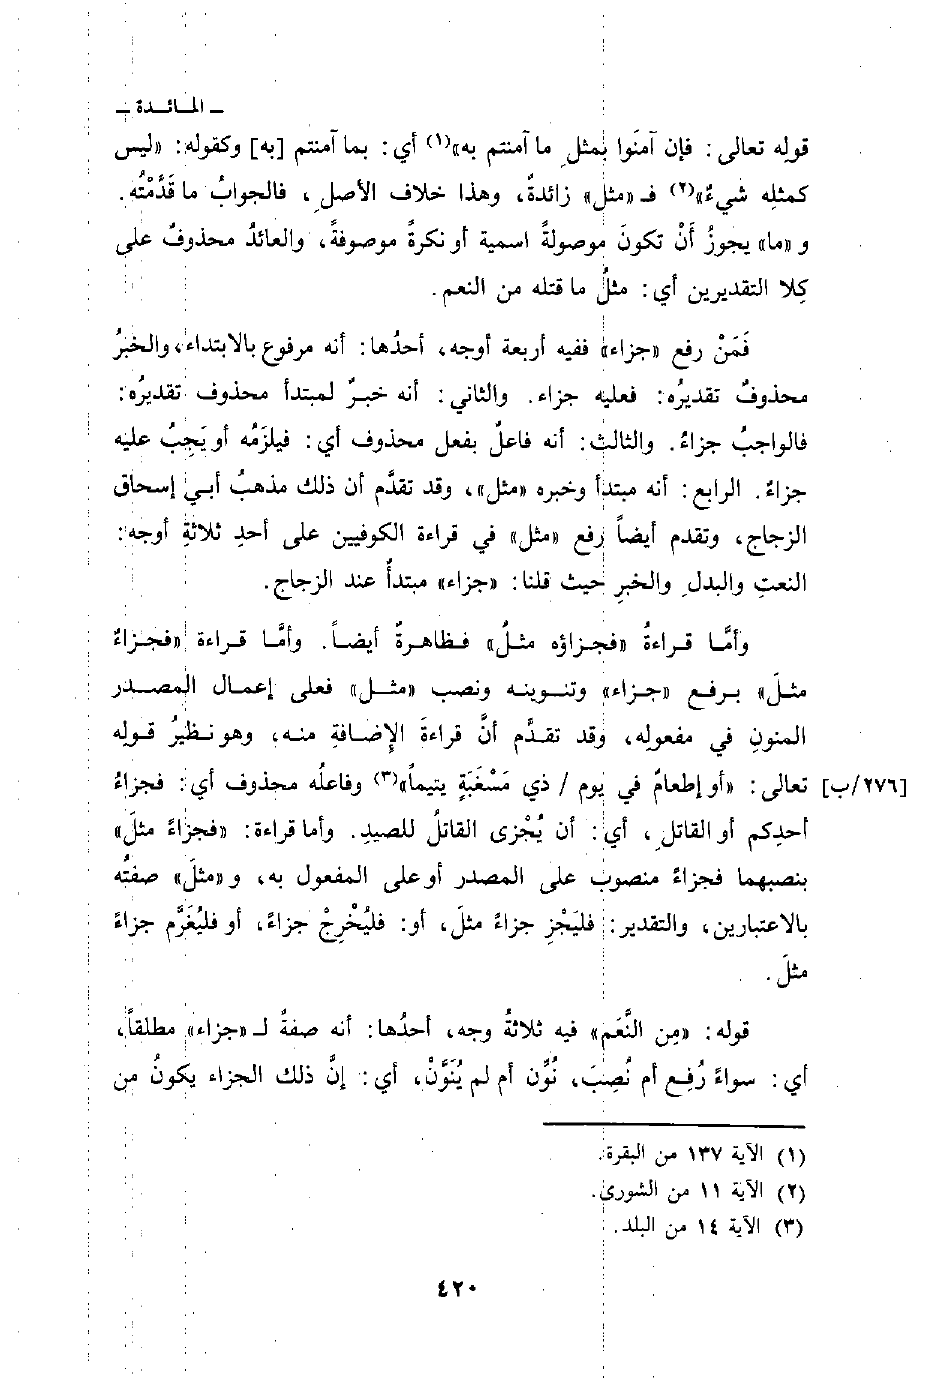 ـ المـائـدة ـ
قوله تعالى: فإن آمنَوا بمثلِ ما آمنتم به»(١) أي: بما آمنتم [به] وكقوله: «ليس
كمثلِه شيءٌ»(٢) فـ «مثل» زائدةٌ، وهذا خلاف الأصلِ، فالجوابُ ما قَدَّمْتُه.
و «ما» يجوزُ أَنْ تكونَ موصولةً اسمية أو نكرةً موصوفةً، والعائدُ محذوفٌ على
كِلا التقديرين أي: مثلُ ما قتله من النعم.
فَمَنْ رفع «جزاء» ففيه أربعة أوجه، أحدُها: أنه مرفوع بالابتداء، والخبرُ
محذوفٌ تقديرُه: فعليه جزاء. والثاني: أنه خبرٌ لمبتدأ محذوف تقديرُه:
فالواجبُ جزاءٌ. والثالث: أنه فاعلٌ بفعل محذوف أي: فيلزَمُه أو يَجِبُ عليه
جزاءٌ. الرابع: أنه مبتدأ وخبره «مثل»، وقد تقدَّم أن ذلك مذهبُ أبي إسحاق
الزجاج، وتقدم أيضاً رفع «مثل» في قراءة الكوفيين على أحدِ ثلاثةِ أوجه:
النعتِ والبدلِ والخبرِ حيث قلنا: «جزاء» مبتدأٌ عند الزجاج.
وأمَّا قراءةُ «فجزاؤه مثلُ» فظاهرةٌ أيضاً. وأمَّا قراءة «فجزاءٌ
مثلَ» برفع «جزاء» وتنوينه ونصب «مثل» فعلى إعمال المصدر
المنونِ في مفعوله، وقد تقدَّم أنَّ قراءةَ الإِضافةِ منه، وهو نظيرُ قولِه
تعالى: «أو إطعامٌ في يوم / ذي مَسْغَبَةٍ يتيماً»(٣) وفاعلُه محذوف أي: فجزاءٌ [٢٧٦/ب]
أحدِكم أو القاتلِ، أي: أن يُجْزى القاتلُ للصيدِ. وأما قراءة: «فجزاءً مثلَ»
بنصبِهما فجزاءً منصوب على المصدر أو على المفعول به، و «مثلَ» صفتُه
بالاعتبارين، والتقدير: فليَجْزِ جزاءً مثلَ، أو: فليُخْرِجْ جزاءً، أو فليُغَرَّم جزاءً
مثلَ.
قوله: «مِن النَّعَمِ» فيه ثلاثةُ وجه، أحدُها: أنه صفةٌ لـ «جزاء» مطلقاً،
أي: سواءً رُفِع أم نُصِبَ، نُوِّن أم لم يُنَوَّنْ، أي: إنَّ ذلك الجزاء يكونُ من
(١) الآية ١٣٧ من البقرة.
(٢) الآية ١١ من الشورى.
(٣) الآية ١٤ من البلد.
٤٢٠